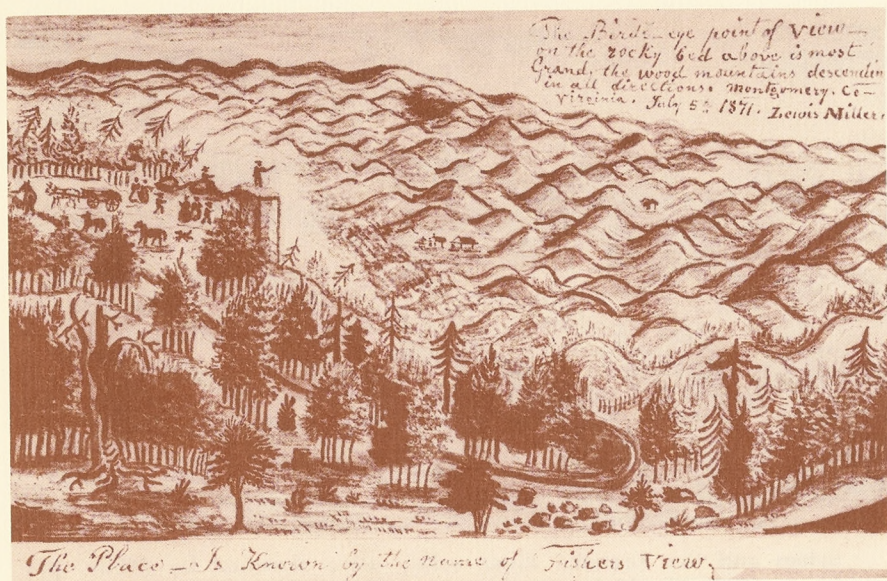 The Birds-eye point of View—
on the rocky bed above is most
Grand, the wood mountains descending
in all directions. Montgomery. Co—
Virginia. July 5th 1871. Lewis Miller.
The Place—Is Known by the name of Fishers View.